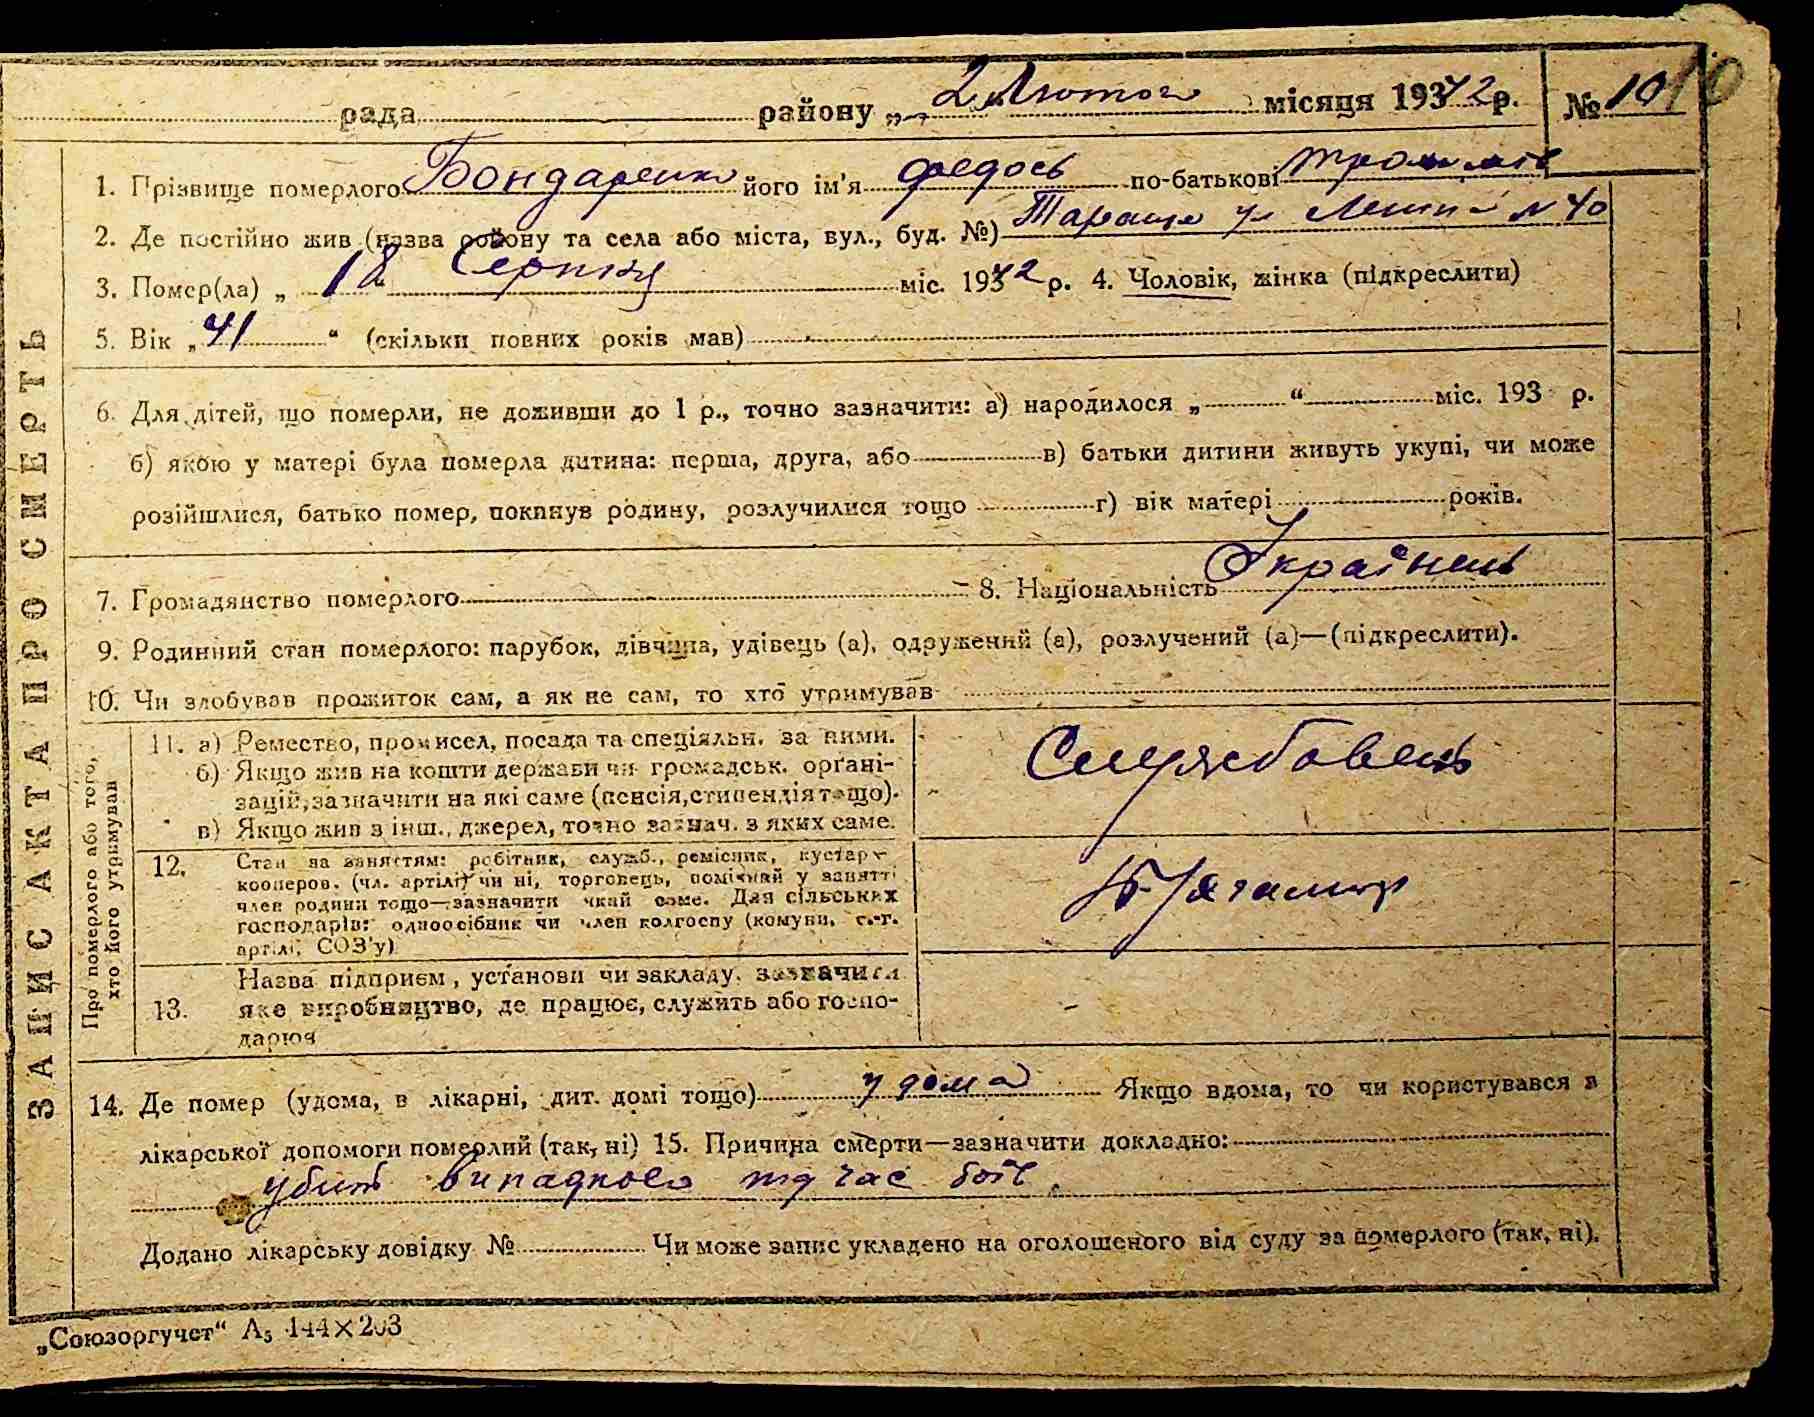 рада района „2" Лютого місяця 1942 р. № 10 10
1. Прізвище померлого Бондаренко його ім'я Федось по-батькові
2. Де постійно жив (назва району та села або міста, вул., буд. №) Тараща ул Леніна N 40
3. Помер(ла) „ 18 Серпня міс. 1942 р. 4. Чоловік, жінка (підкреслити)
5. Вік „41" (скільки повних років мав)
6. Для дітей, що померли, не доживши до 1 р., точно зазначити: а) народилося „ " міс. 193 р.
б) якою у матері була померла дитина: перша, друга, або в) батьки дитини живуть укупі, чи може
розійшлися, батько помер, покинув родину, розлучилися тощо г) вік матері років.
7. Громадянство померлого 8. Національність Українець
9. Родинний стан померлого: парубок, дівчина, удівець (а), одружений (а), розлучений (а)—(підкреслити).
10. Чи здобував прожиток сам, а як не сам, то хто утримував
ЗАПИС АКТА ПРО СМЕРТЬ
Про померлого або того,
хто його утримував
11. а) Ремество, промисел, посада та спеціяльн. за ними.
б) Якщо жив на кошти держави чи громадськ. орґані-
зацій, зазначити на які саме (пенсія, стипендія тощо).
в) Якщо жив з інш., джерел, точно зазнач. з яких саме.
Службовець
12. Стан за заняттям: робітник, служб., ремісник, кустар
кооперов. (чл. артілі) чи ні, торговець, помічний у занятті
член родини тощо—зазначити який саме. Для сільських
господарів: одноосібник чи член колгоспу (комуни, с.-г.
артілі, СОЗ'у)
13. Назва підприєм, установи чи закладу, зазначити
яке виробництво, де працює, служить або госпо-
дарює
-
14. Де помер (удома, в лікарні, дит. домі тощо) удома Якщо вдома, то чи користувався з
лікарської допомоги померлий (так, ні) 15. Причина смерти—зазначити докладно:
убит випадково під час боїв.
Додано лікарську довідку № Чи може запис укладено на оголошеного від суду за померлого (так, ні).
„Союзоргучет" А₅ 144×203